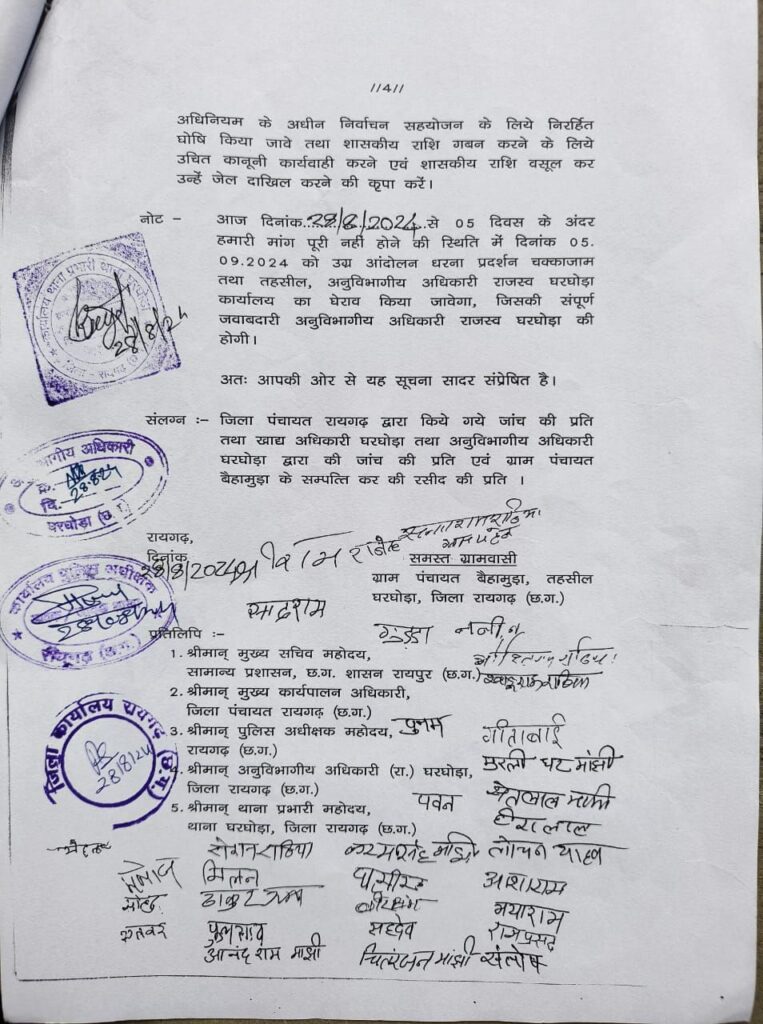 //4//
अधिनियम के अधीन निर्वाचन सहयोजन के लिये निरर्हित
घोषि किया जावे तथा शासकीय राशि गबन करने के लिये
उचित कानूनी कार्यवाही करने एवं शासकीय राशि वसूल कर
उन्हें जेल दाखिल करने की कृपा करें।
नोट – आज दिनांक 28/8/2024 से 05 दिवस के अंदर
हमारी मांग पूरी नहीं होने की स्थिति में दिनांक 05.
09.2024 को उग्र आंदोलन धरना प्रदर्शन चक्काजाम
तथा तहसील, अनुविभागीय अधिकारी राजस्व घरघोड़ा
कार्यालय का घेराव किया जावेगा, जिसकी संपूर्ण
जवाबदारी अनुविभागीय अधिकारी राजस्व घरघोड़ा की
होगी।
28/8/24
अतः आपकी ओर से यह सूचना सादर संप्रेषित है।
संलग्न :– जिला पंचायत रायगढ़ द्वारा किये गये जांच की प्रति
तथा खाद्य अधिकारी घरघोड़ा तथा अनुविभागीय अधिकारी
घरघोड़ा द्वारा की जांच की प्रति एवं ग्राम पंचायत
बैहामुड़ा के सम्पत्ति कर की रसीद की प्रति ।
भागीय अधिकारी
क्र.
दि. 28.8.24
घरघोड़ा (छ
रायगढ़,
दिनांक 28/8/2024
समस्त ग्रामवासी
ग्राम पंचायत बैहामुड़ा, तहसील
घरघोड़ा, जिला रायगढ़ (छ.ग.)
कार्यालय पुलिस अधीक्षक
रायगढ़ (छ.ग.)
प्रतिलिपि :–
1. श्रीमान् मुख्य सचिव महोदय,
सामान्य प्रशासन, छ.ग. शासन रायपुर (छ.ग.)
2. श्रीमान् मुख्य कार्यपालन अधिकारी,
जिला पंचायत रायगढ़ (छ.ग.)
3. श्रीमान् पुलिस अधीक्षक महोदय, पुनम
गीताबाई
रायगढ़ (छ.ग.)
4. श्रीमान् अनुविभागीय अधिकारी (रा.) घरघोड़ा,
मुरली धर मांझी
जिला रायगढ़ (छ.ग.)
5. श्रीमान् थाना प्रभारी महोदय, पवन
थाना घरघोड़ा, जिला रायगढ़ (छ.ग.)
हीरालाल
जिला कार्यालय रायगढ़ (छ.ग.)
28/8/24
रोशन राठिया
लोचन यादव
मिलन
आशाराम
नयाराम
सहदेव
आनंद राम मांझी चितरंजन मांझी संतोष